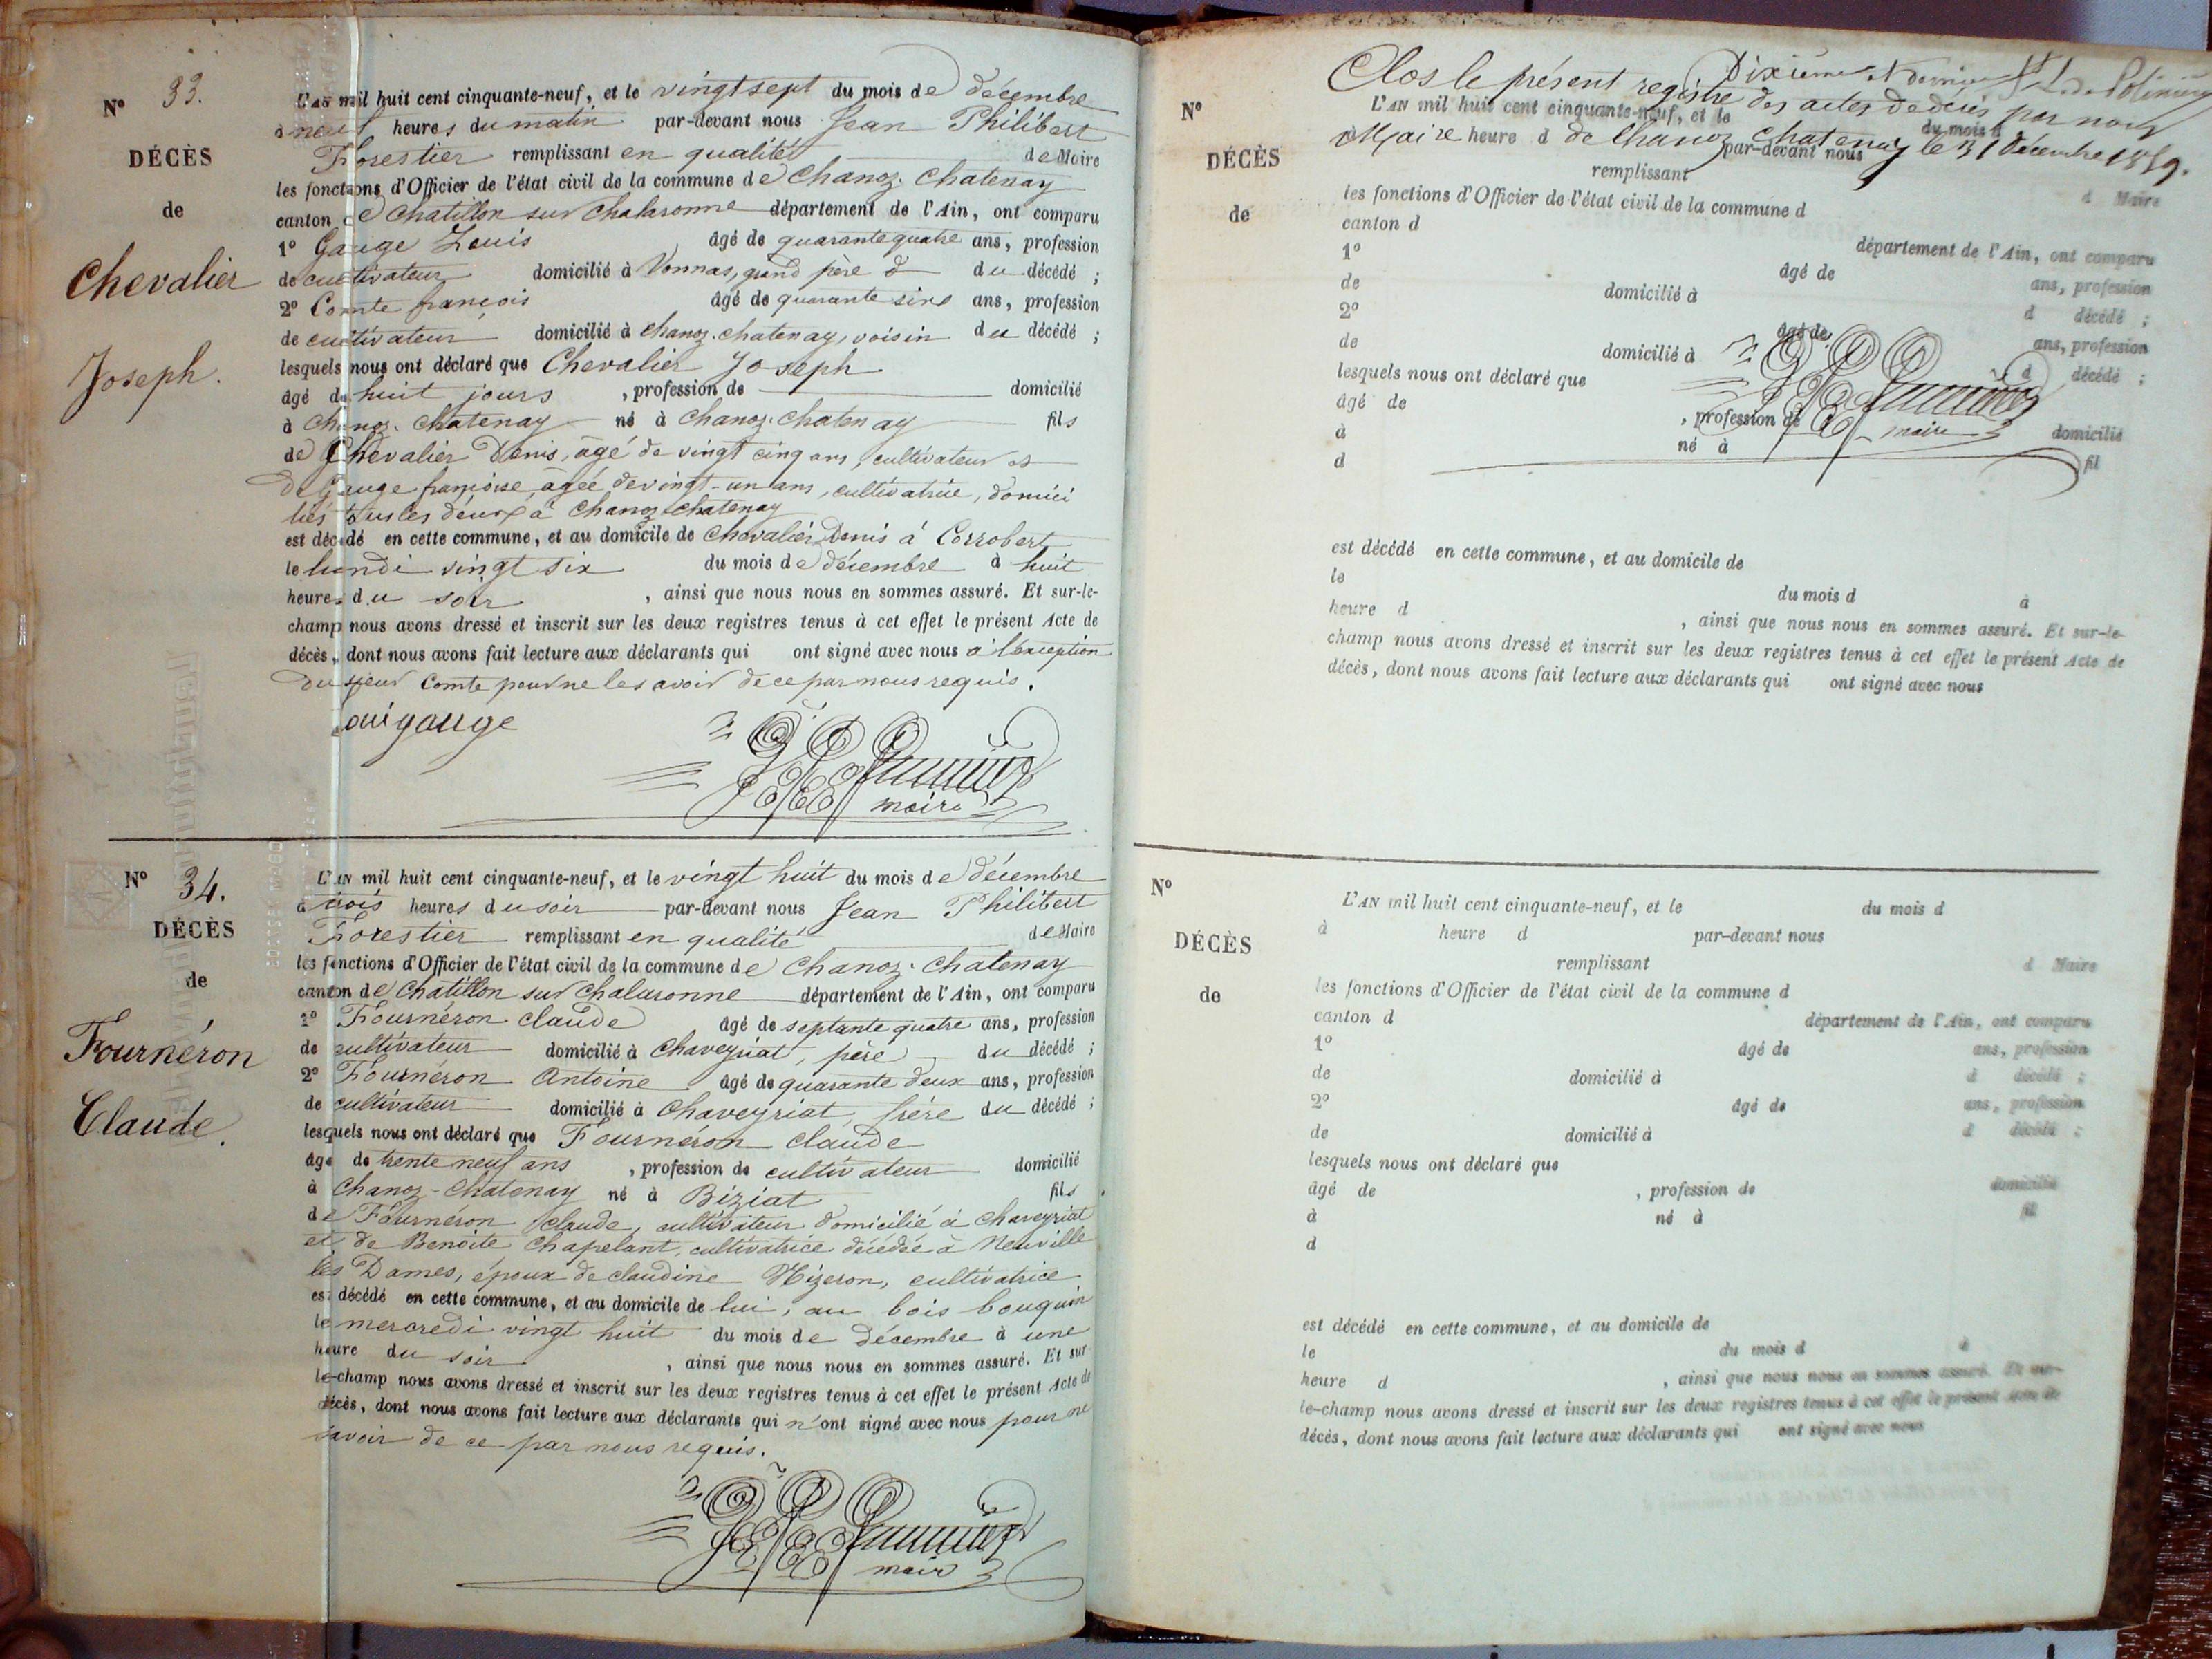 N° 33.
DÉCÈS
de
Chevalier
Joseph.
L'AN mil huit cent cinquante-neuf, et le vingt sept du mois de décembre
à neuf heures du matin par-devant nous Jean Philibert
Forestier remplissant en qualité de Maire
les fonctions d'Officier de l'état civil de la commune de Chanoz-Chatenay
canton de Chatillon sur Chalaronne département de l'Ain, ont comparu
1° Gauge Louis âgé de quarante quatre ans, profession
de cultivateur domicilié à Vonnas, grand père du décédé ;
2° Comte françois âgé de quarante cinq ans, profession
de cultivateur domicilié à Chanoz-chatenay, voisin du décédé ;
lesquels nous ont déclaré que Chevalier Joseph
âgé de huit jours , profession de domicilié
à Chanoz-Chatenay né à Chanoz-Chatenay fils
de Chevalier Denis, âgé de vingt cinq ans, cultivateur et
de Gauge françoise, âgée de vingt-un ans, cultivatrice, domici
liés tus les deux à Chanoz-Chatenay
est décédé en cette commune, et au domicile de Chevalier Denis à Corrobert
le lundi vingt six du mois de décembre à huit
heures du soir , ainsi que nous nous en sommes assuré. Et sur-le-
champ nous avons dressé et inscrit sur les deux registres tenus à cet effet le présent Acte de
décès, dont nous avons fait lecture aux déclarants qui ont signé avec nous à l'exception
du sieur Comte pour ne les avoir de ce par nous requis.
Loui gauge
maire
N° 34.
DÉCÈS
de
Fournéron
Claude.
L'AN mil huit cent cinquante-neuf, et le vingt huit du mois de décembre
à trois heures du soir par-devant nous Jean Philibert
Forestier remplissant en qualité de Maire
les fonctions d'Officier de l'état civil de la commune de Chanoz-Chatenay
canton de Chatillon sur Chalaronne département de l'Ain, ont comparu
1° Fournéron Claude âgé de septante quatre ans, profession
de cultivateur domicilié à Chaveyriat, père du décédé ;
2° Fournéron Antoine âgé de quarante deux ans, profession
de cultivateur domicilié à Chaveyriat, frère du décédé ;
lesquels nous ont déclaré que Fournéron Claude
âgé de trente neuf ans , profession de cultivateur domicilié
à Chanoz-Chatenay né à Biziat fils
de Fournéron Claude, cultivateur domicilié à Chaveyriat
et de Benoite Chapelant, cultivatrice décédée à Neuville
les Dames, époux de Claudine Mizeron, cultivatrice
est décédé en cette commune, et au domicile de lui, au bois bouquin
le mercredi vingt huit du mois de décembre à une
heure du soir , ainsi que nous nous en sommes assuré. Et sur
le-champ nous avons dressé et inscrit sur les deux registres tenus à cet effet le présent Acte de
décès, dont nous avons fait lecture aux déclarants qui n'ont signé avec nous pour ne
savoir de ce par nous requis.
maire
Dixième et dernier
Clos le présent registre des actes de décès par nous
Maire de Chanoz Chatenay le 31 décembre 1859.
N°
DÉCÈS
de
L'AN mil huit cent cinquante-neuf, et le du mois d
à heure d par-devant nous
remplissant d Maire
les fonctions d'Officier de l'état civil de la commune d
canton d département de l'Ain, ont comparu
1° âgé de ans, profession
de domicilié à d décédé ;
2° âgé de ans, profession
de domicilié à d décédé ;
lesquels nous ont déclaré que
âgé de , profession de domicilié
à né à fil
d
maire
est décédé en cette commune, et au domicile de
le du mois d à
heure d , ainsi que nous nous en sommes assuré. Et sur-le-
champ nous avons dressé et inscrit sur les deux registres tenus à cet effet le présent Acte de
décès, dont nous avons fait lecture aux déclarants qui ont signé avec nous
N°
DÉCÈS
de
L'AN mil huit cent cinquante-neuf, et le du mois d
à heure d par-devant nous
remplissant d Maire
les fonctions d'Officier de l'état civil de la commune d
canton d département de l'Ain, ont comparu
1° âgé de ans, profession
de domicilié à d décédé ;
2° âgé de ans, profession
de domicilié à d décédé ;
lesquels nous ont déclaré que
âgé de , profession de domicilié
à né à fil
d
est décédé en cette commune, et au domicile de
le du mois d à
heure d , ainsi que nous nous en sommes assuré. Et sur-
le-champ nous avons dressé et inscrit sur les deux registres tenus à cet effet le présent Acte de
décès, dont nous avons fait lecture aux déclarants qui ont signé avec nous